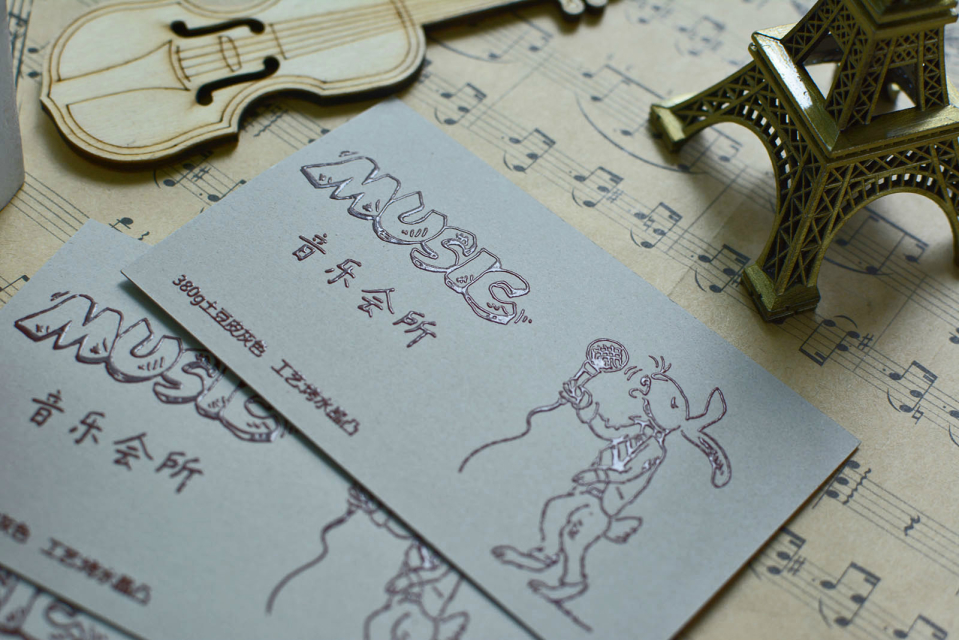 MUSIC
音乐会所
380g土豆皮灰色 工艺烤水晶凸
MUSIC
音乐会所
灰色 工艺烤水晶凸